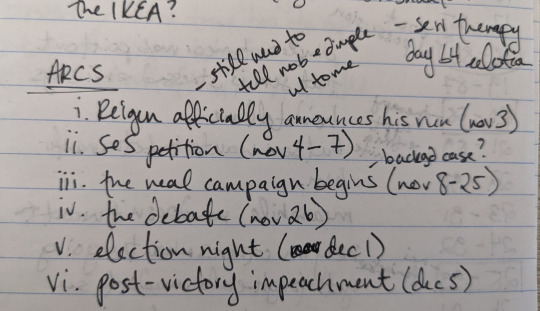 the IKEA?
- seri therapy
day b4 election
ARCS
- still need to
tell mob & dimple
w/ tome
i. Reigen officially announces his run (nov 3)
ii. SeS petition (nov 4-7)
- backgd case?
iii. the real campaign begins (nov 8-25)
iv. the debate (nov 26)
v. election night (dec 1)
vi. post-victory impeachment (dec 5)